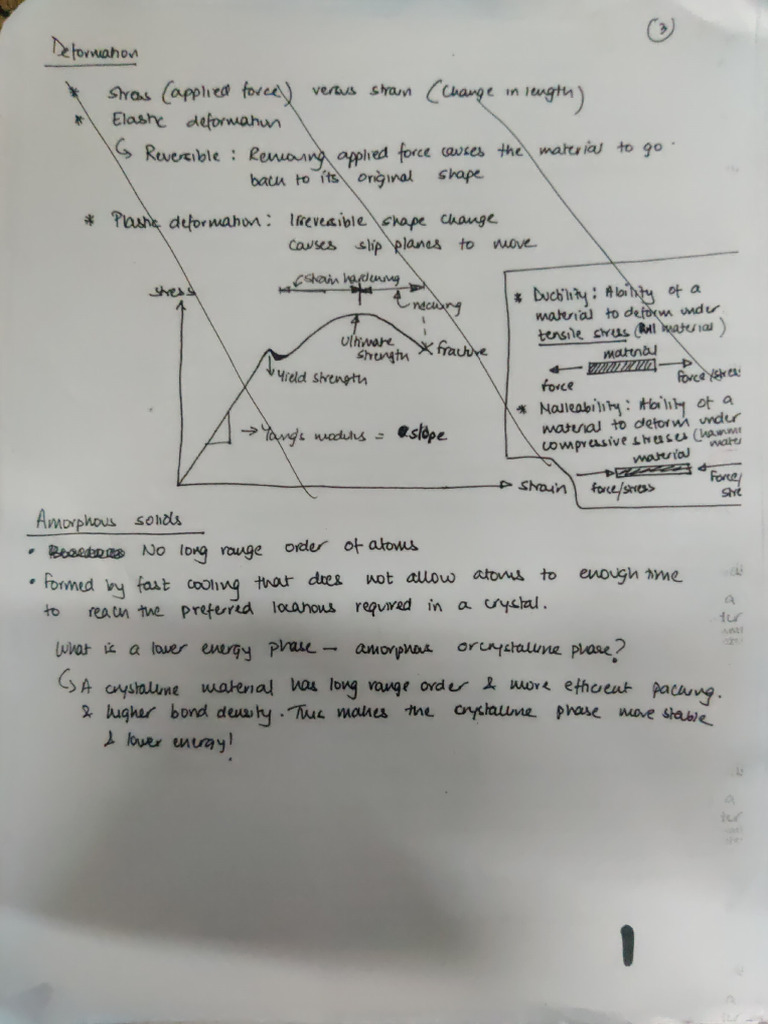 (3)
Deformation
* Stress (applied force) versus strain (Change in length)
* Elastic deformation
↳ Reversible : Removing applied force causes the material to go
back to its original shape
* Plastic deformation : Irreversible shape change
causes slip planes to move
stress
strain hardening
necking
Ultimate
strength
fracture
Yield strength
→ Young's modulus = slope
strain
* Ductility : Ability of a
material to deform under
tensile stress (Pull material)
material
force
Force/stress
* Malleability : Ability of a
material to deform under
compressive stresses (
material
force/stress
Force/
Amorphous solids
• No long range order of atoms
• Formed by fast cooling that does not allow atoms to enough time
to reach the preferred locations required in a crystal.
What is a lower energy phase — amorphous or crystalline phase?
↳ A crystalline material has long range order & more efficient packing.
& higher bond density. This makes the crystalline phase more stable
& lower energy!
1